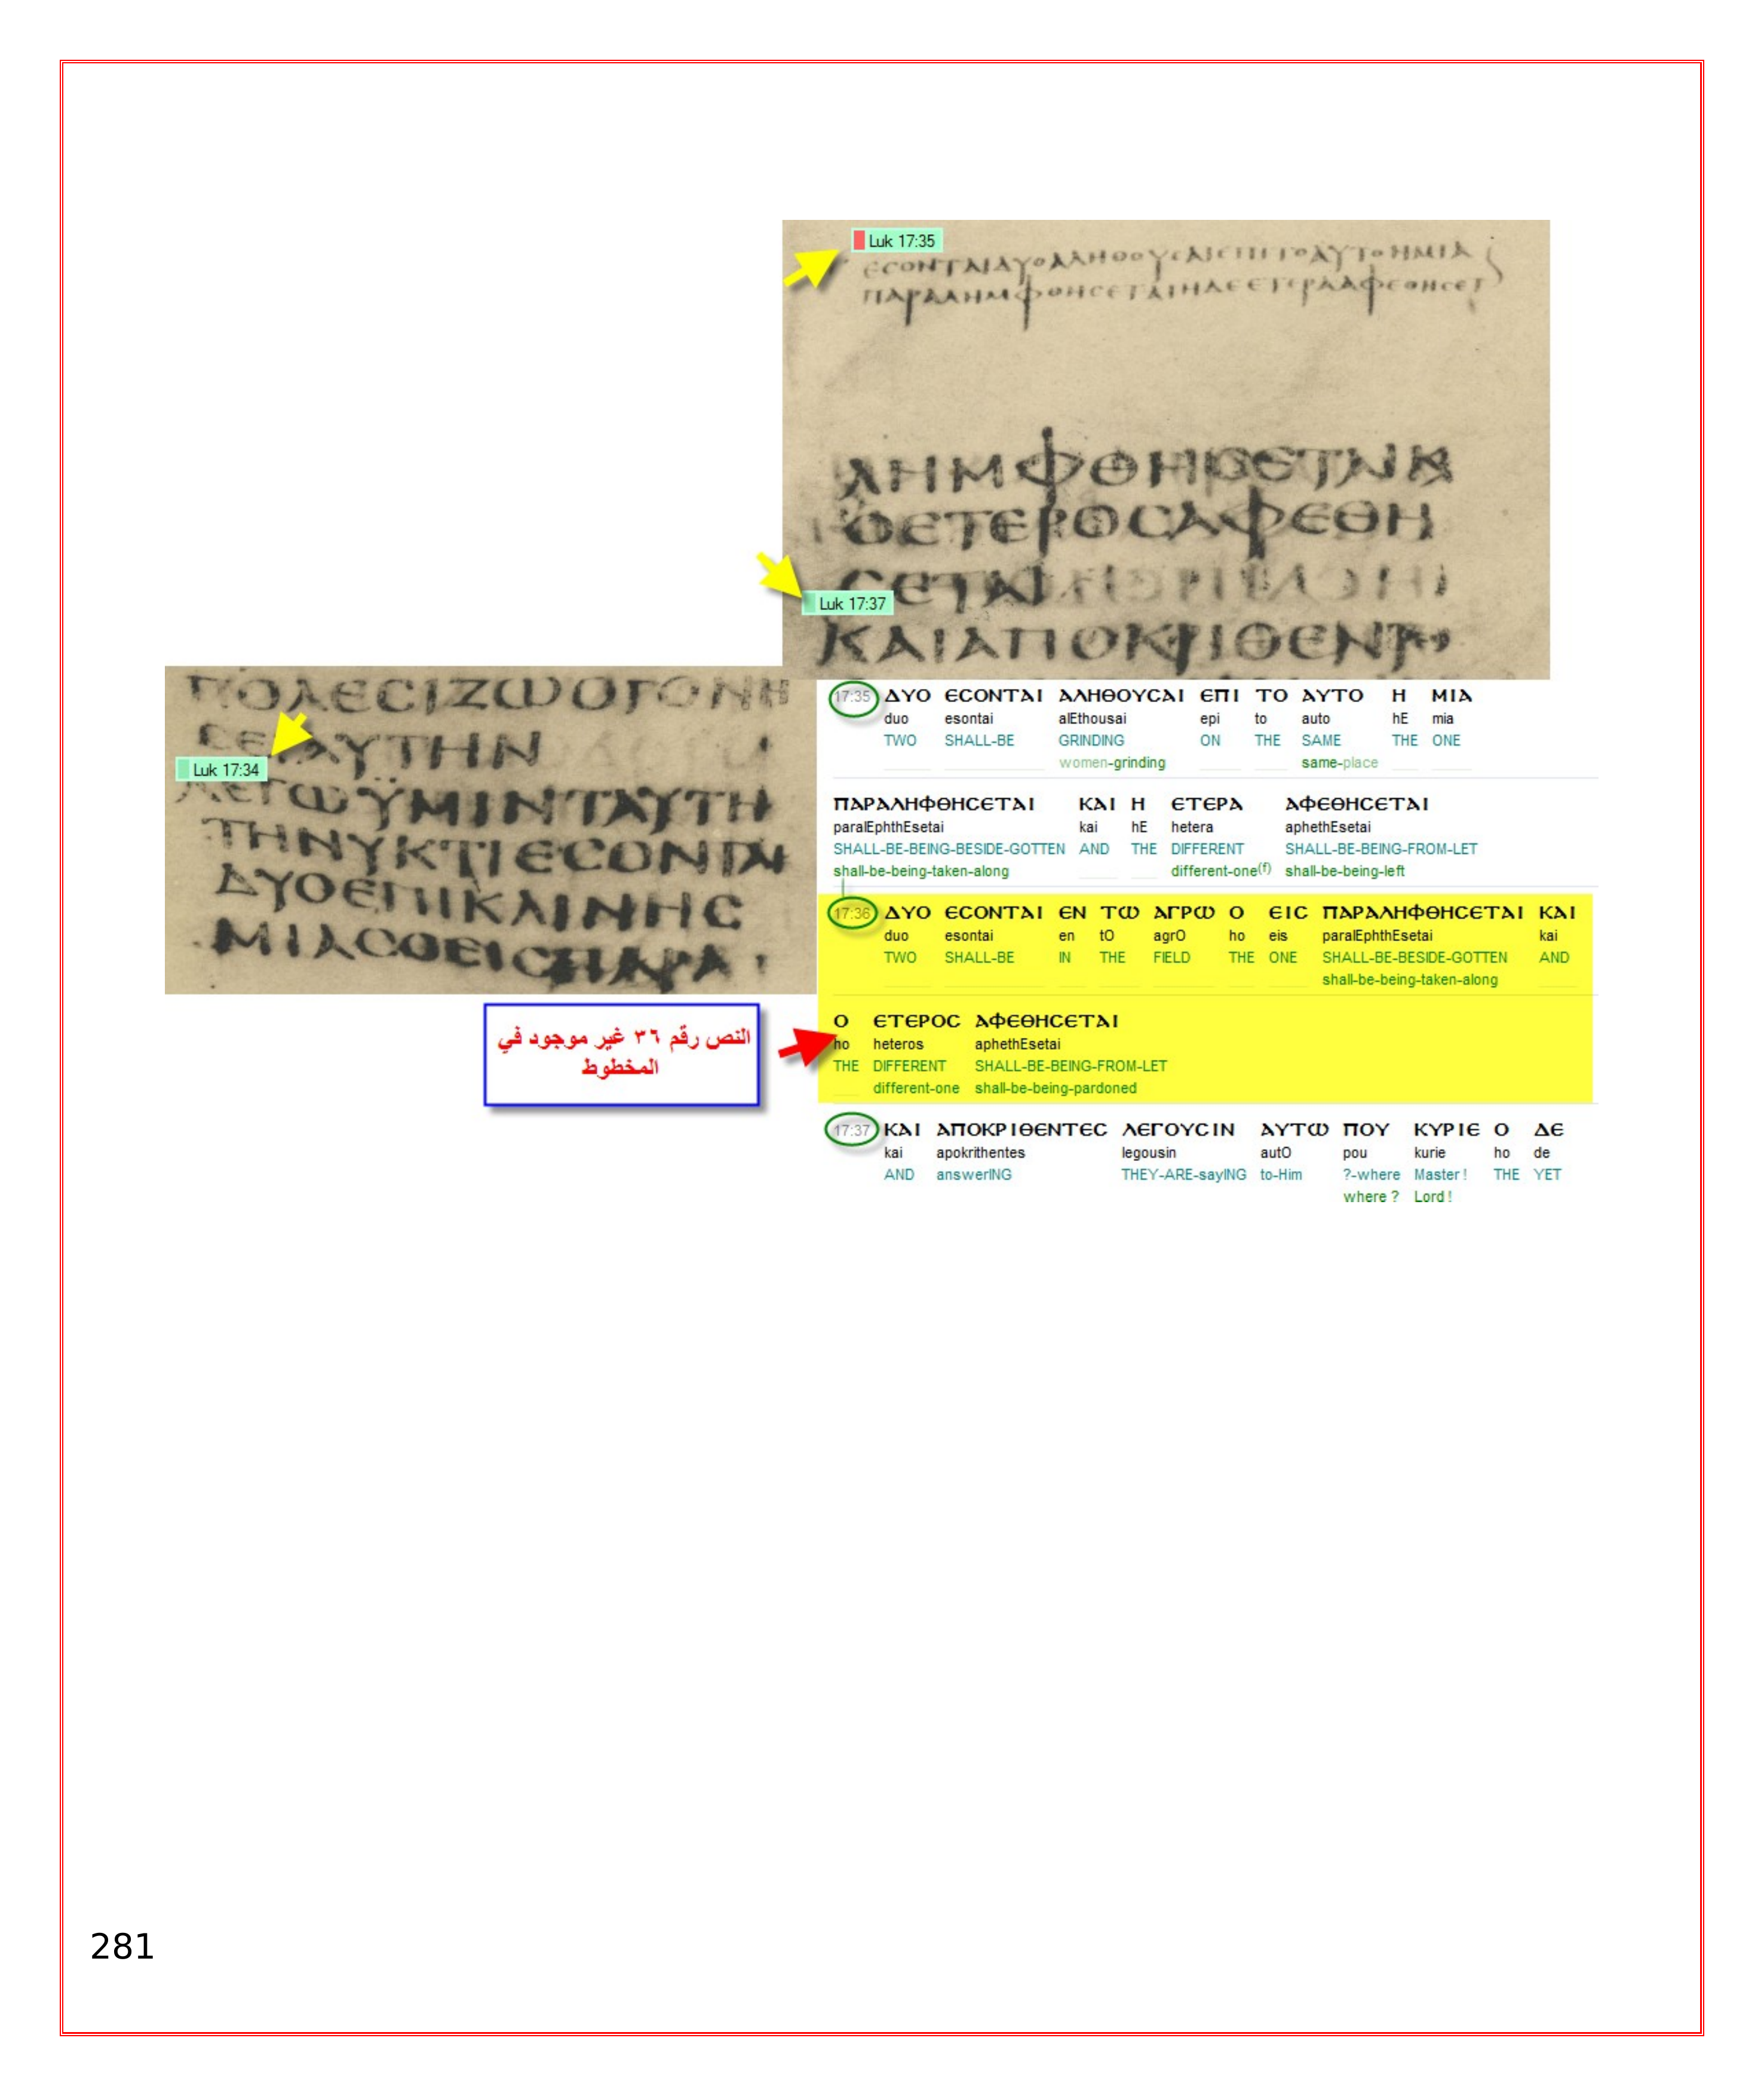 Luk 17:35
ΕCΟΝΤΑΙΔΥΟΑΛΗΘΟΥCΑΙΕΠΙΤΟΑΥΤΟΗΜΙΑ
ΠΑΡΑΛΗΜΦΘΗCΕΤΑΙΗΔΕΕΤΕΡΑΑΦΕΘΗCΕΤ
ΛΗΜΦΘΗCΕΤΑΙΚ
ΟΕΤΕΡΟCΑΦΕΘΗ
CΕΤΑΙ
Luk 17:37
ΚΑΙΑΠΟΚΡΙΘΕΝΤ
ΠΟΛΕCΙΖΩΟΓΟΝΗ
CΕΙΑΥΤΗΝ
Luk 17:34
ΛΕΓΩΫΜΙΝΤΑΥΤΗ
ΤΗΝΥΚΤΙΕCΟΝΤΑΙ
ΔΥΟΕΠΙΚΛΙΝΗC
ΜΙΑCΟΕΙCΠΑΡΑ
17:35 ΔΥΟ ЄCΟΝΤΑΙ ΑΛΗΘΟΥCΑΙ ЄΠΙ ΤΟ ΑΥΤΟ Η ΜΙΑ
duo esontai alEthousai epi to auto hE mia
TWO SHALL-BE GRINDING ON THE SAME THE ONE
women-grinding same-place
ΠΑΡΑΛΗΦΘΗCЄΤΑΙ ΚΑΙ Η ЄΤЄΡΑ ΑΦЄΘΗCЄΤΑΙ
paralEphthEsetai kai hE hetera aphethEsetai
SHALL-BE-BEING-BESIDE-GOTTEN AND THE DIFFERENT SHALL-BE-BEING-FROM-LET
shall-be-being-taken-along different-one(f) shall-be-being-left
17:36 ΔΥΟ ЄCΟΝΤΑΙ ЄΝ ΤΩ ΑΓΡΩ Ο ЄΙC ΠΑΡΑΛΗΦΘΗCЄΤΑΙ ΚΑΙ
duo esontai en tO agrO ho eis paralEphthEsetai kai
TWO SHALL-BE IN THE FIELD THE ONE SHALL-BE-BESIDE-GOTTEN AND
shall-be-being-taken-along
Ο ЄΤЄΡΟC ΑΦЄΘΗCЄΤΑΙ
ho heteros aphethEsetai
THE DIFFERENT SHALL-BE-BEING-FROM-LET
different-one shall-be-being-pardoned
النص رقم ٣٦ غير موجود في
المخطوط
17:37 ΚΑΙ ΑΠΟΚΡΙΘЄΝΤЄC ΛЄΓΟΥCΙΝ ΑΥΤΩ ΠΟΥ ΚΥΡΙЄ Ο ΔЄ
kai apokrithentes legousin autO pou kurie ho de
AND answerING THEY-ARE-sayING to-Him ?-where Master ! THE YET
where ? Lord !
281